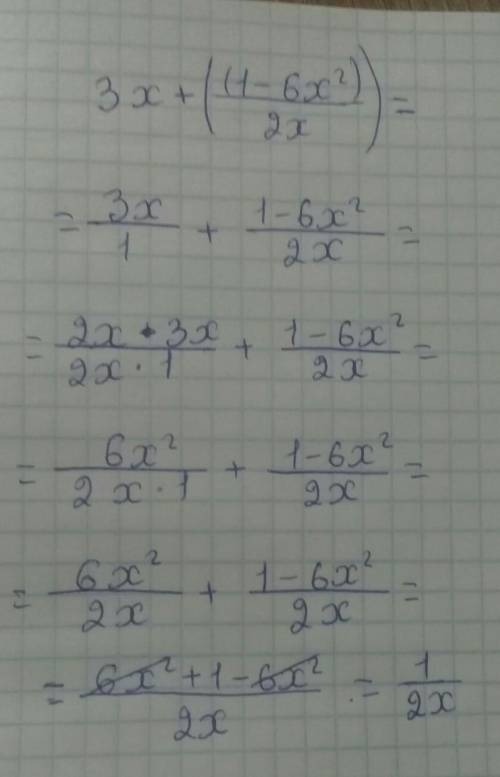 3x + ((1 - 6x²) / 2x) =
= 3x / 1 + 1 - 6x² / 2x =
= 2x · 3x / 2x · 1 + 1 - 6x² / 2x =
= 6x² / 2x · 1 + 1 - 6x² / 2x =
= 6x² / 2x + 1 - 6x² / 2x =
= 6x² + 1 - 6x² / 2x = 1 / 2x